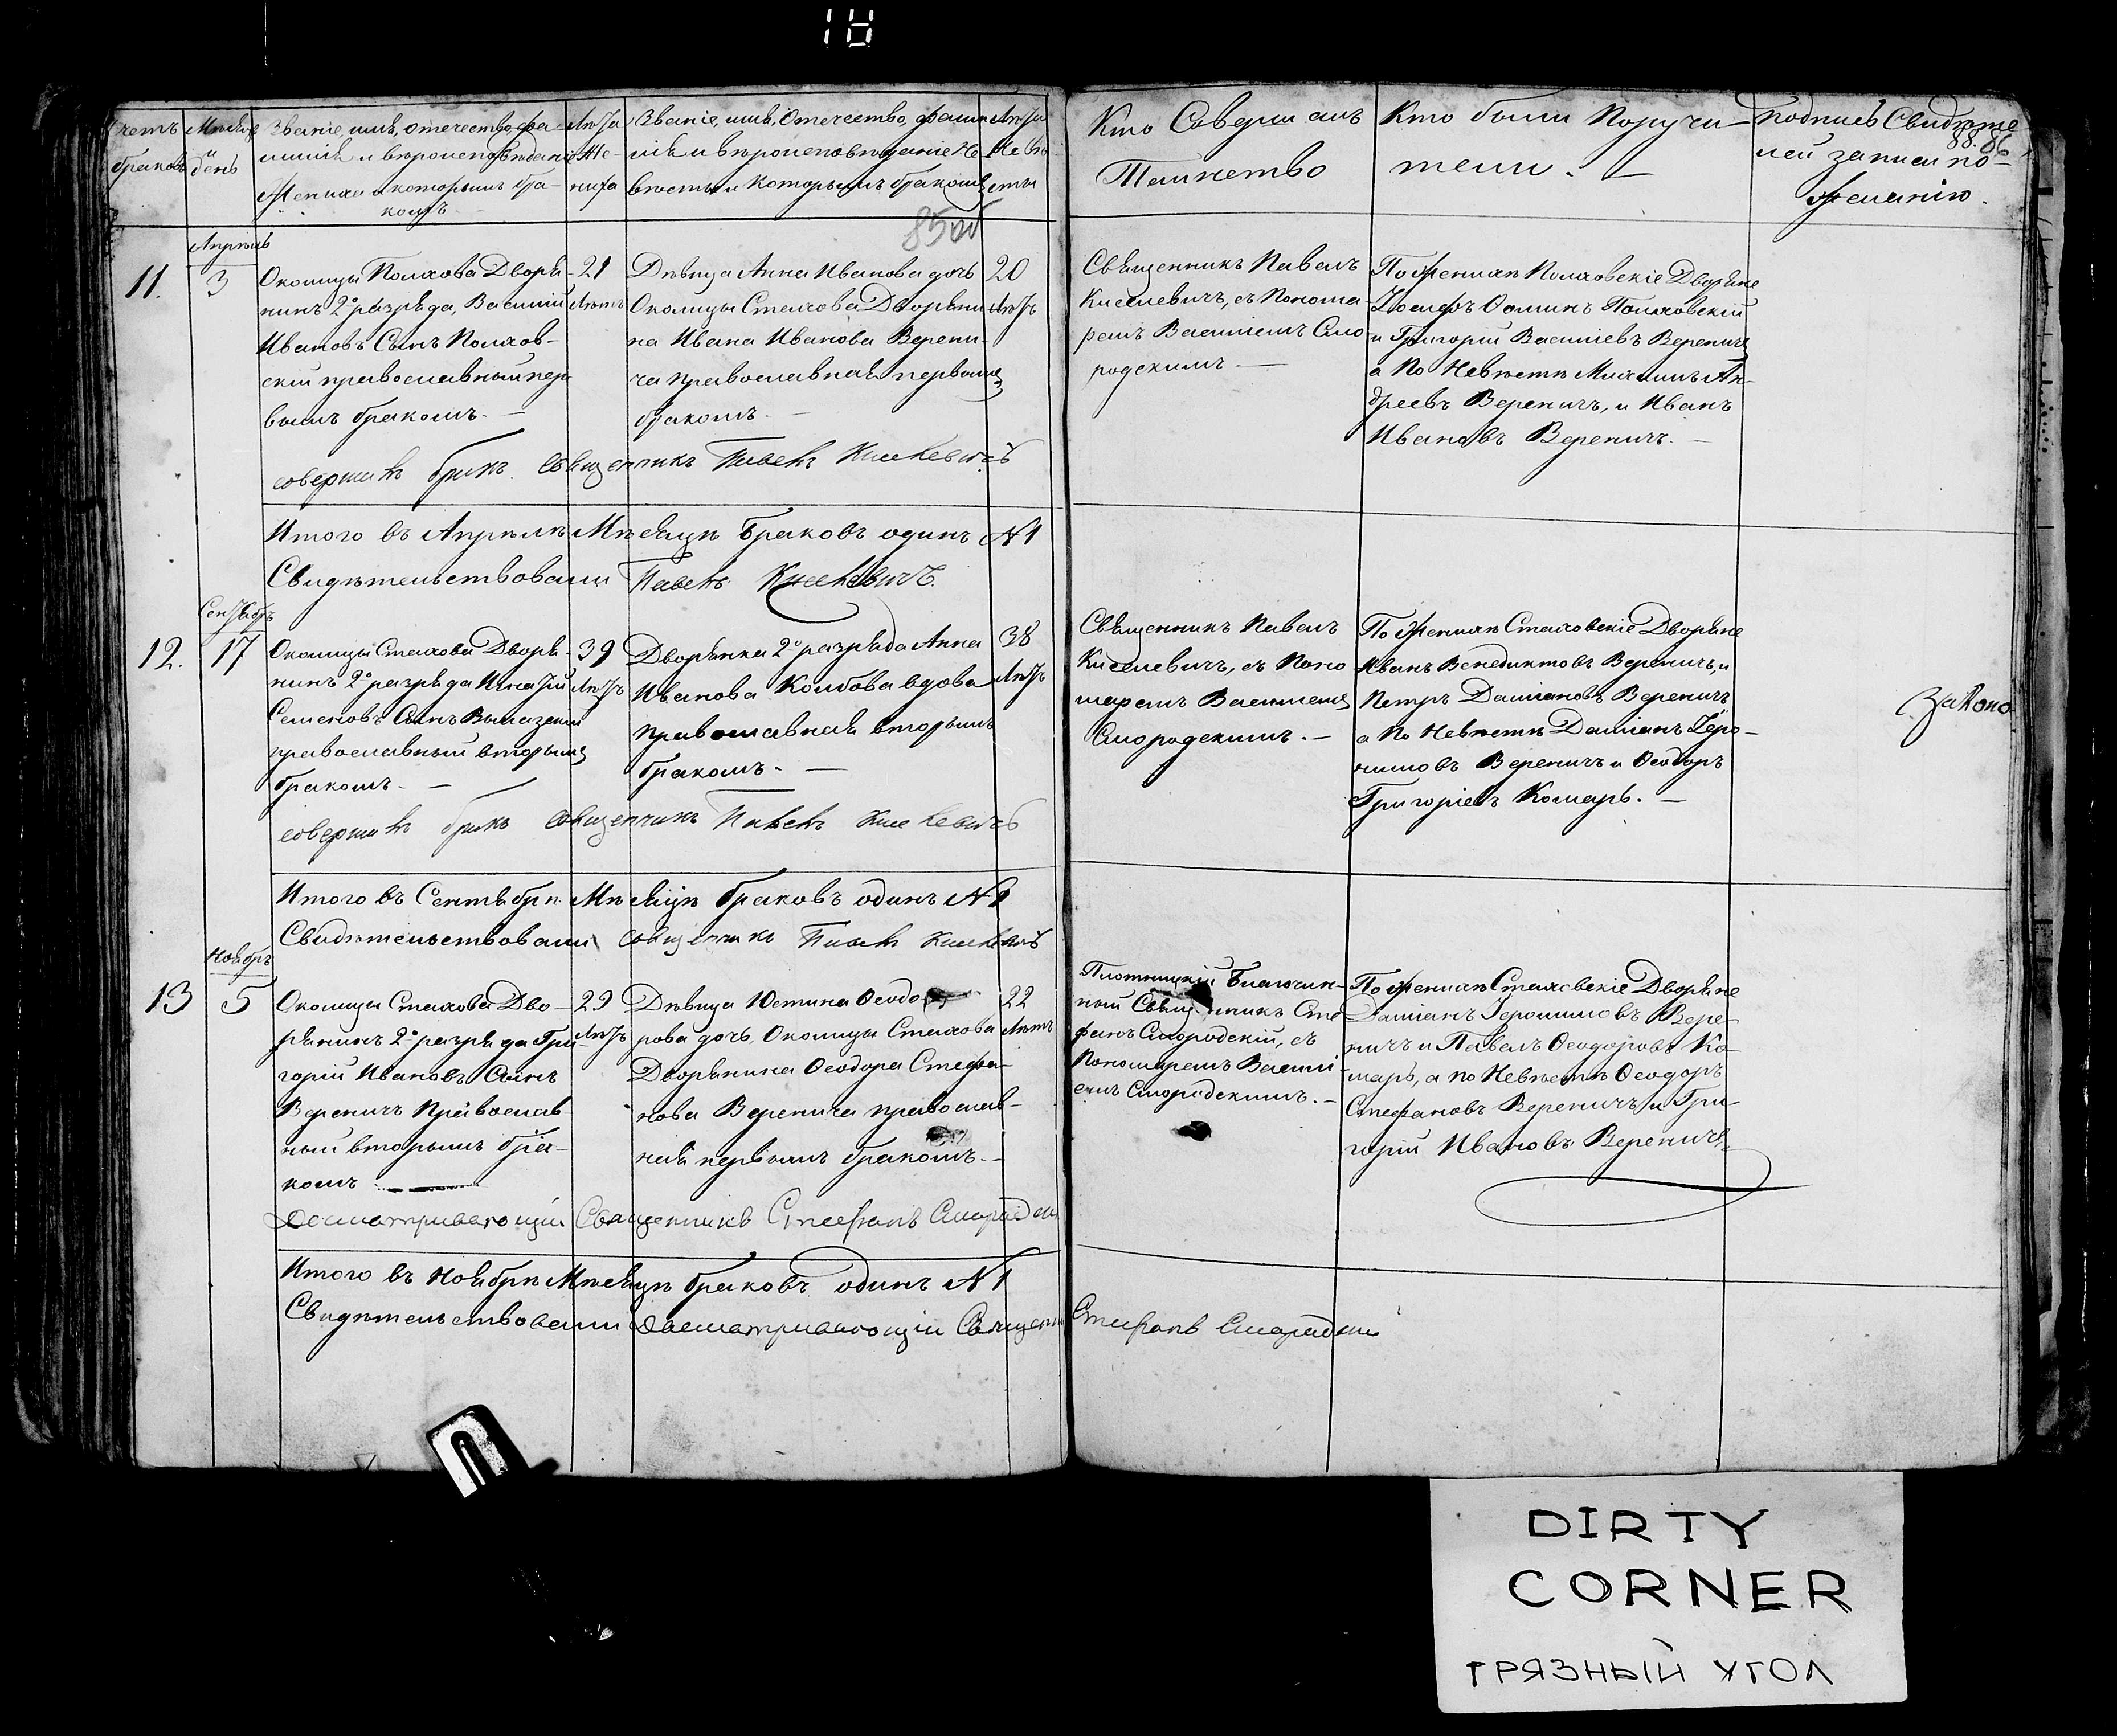 18
Счетъ
браковъ
Мѣсяцъ
и
день
Званіе, имя, отечество, фа-
милія и вѣроисповѣданіе
Жениха и которымъ бра-
комъ
Лѣта
Же-
ниха
Званіе, имя, Отечество, фами
лія и вѣроисповѣданіе Не
вѣсты и которымъ бракомъ
Лѣта
Невѣ
сты
85об
Кто Совершалъ
Таинство
Кто были Поручи-
тели. —
Подпись Свидѣте
лей записи по-
желанію.
88. 86
Апрѣль
11.
3
Околицы Полхова Дворя-
нинъ 2º разряда, Василій
Ивановъ Сынъ Полхов-
скій православный пер
вымъ бракомъ. —
21
Лѣтъ
Дѣвица Анна Иванова дочь
Околицы Стахова Дворяни
на Ивана Иванова Верени-
ча православная первымъ
бракомъ. —
20
Лѣтъ
Священникъ Павелъ
Киселевичъ, съ Понома
ремъ Василіемъ Смо
родскимъ —
По Женихѣ Полховскіе Дворяне
Іосифъ Ѳоминъ Полховскій
и Григорій Василіевъ Вереничъ
а По Невѣстѣ Михаилъ Ан-
дреевъ Вереничъ, и Иванъ
Ивановъ Вереничъ. —
совершилъ бракъ. Священникъ Павелъ Киселевичъ
Итого въ Апрѣлѣ Мѣсяцѣ Браковъ одинъ № 1
Свидѣтельствовали Павелъ Киселевичъ.
Сентябрь
12.
17
Околицы Стахова Дворя-
нинъ 2º разряда Игнатій
Семеновъ Сынъ
православный вторымъ
бракомъ. —
39
Лѣтъ
Дворянка 2º разряда Анна
Иванова Колбова вдова
православная вторымъ
бракомъ. —
38
Лѣтъ
Священникъ Павелъ
Киселевичъ, съ Поно
маремъ Василіемъ
Смородскимъ. —
По Женихѣ Стаховскіе Дворяне
Иванъ Венедиктовъ Вереничъ, и
Петръ Даміановъ Вереничъ
а По Невѣстѣ Даміанъ Іеро-
нимовъ Вереничъ и Ѳеодоръ
Григоріевъ Комаръ. —
Законо
совершилъ бракъ Священникъ Павелъ Киселевичъ
Итого въ Сентябрѣ Мѣсяцѣ браковъ одинъ № 1
Свидѣтельствовали Священникъ Павелъ Киселевичъ
Ноябрь
13
5
Околицы Стахова Дво-
рянинъ 2º разряда Гри
горій Ивановъ Сынъ
Вереничъ Православ-
ный вторымъ бра-
комъ —
29
Лѣтъ
Дѣвица Юстина Ѳеодо
рова дочь Околицы Стахова
Дворянина Ѳеодора Стефа-
нова Веренича православ-
ная первымъ бракомъ. —
22
Лѣтъ
Плотницкій Благочин-
ный Священникъ Сте
фанъ Смородскій, съ
Пономаремъ Васили-
емъ Смородскимъ. —
По Женихѣ Стаховскіе Дворяне
Даміанъ Іеронимовъ Вере-
ничъ и Павелъ Ѳеодоровъ Ко-
маръ, а по Невѣстѣ Ѳеодоръ
Стефановъ Вереничъ, и Гри-
горій Ивановъ Вереничъ. —
Досматривающій Священникъ Стефанъ Смородскі
Итого въ Ноябрѣ Мѣсяцѣ браковъ одинъ № 1
Свидѣтельствовали Досматривающій Священн Стефанъ Смородскі
DIRTY
CORNER
ГРЯЗНЫЙ УГОЛ